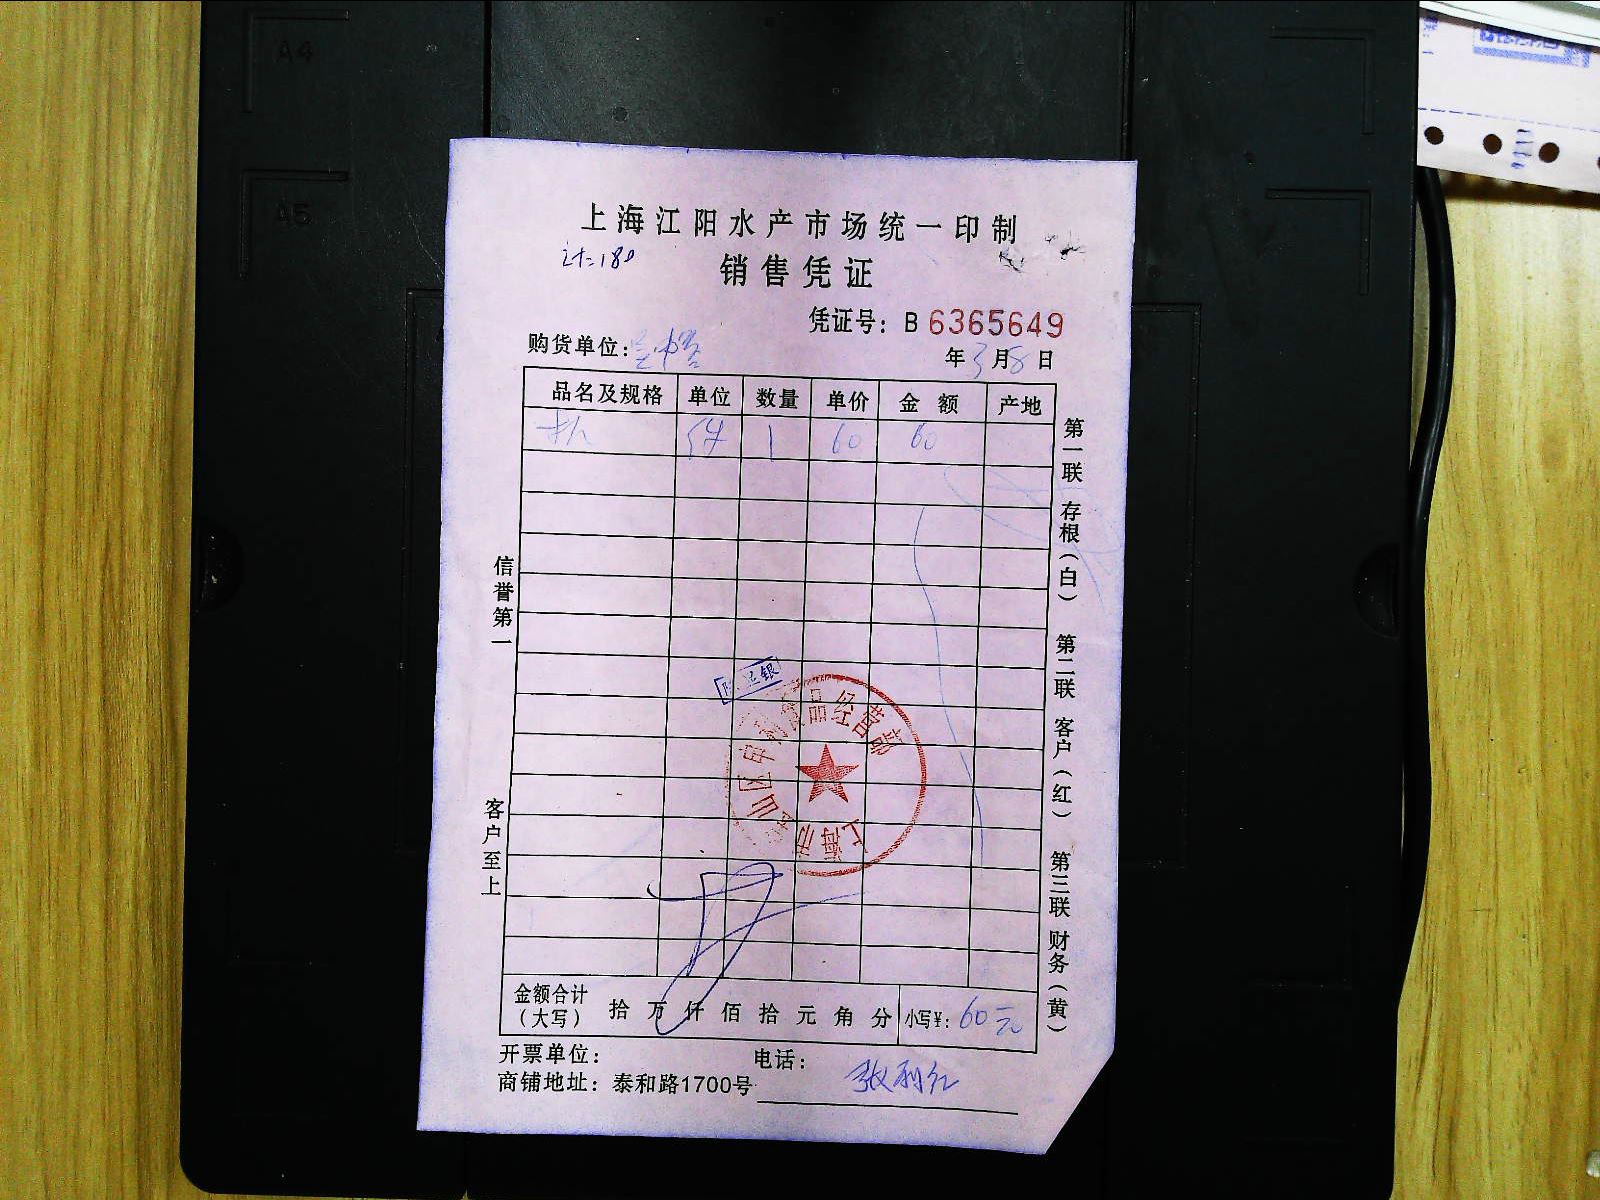 A4
A5
上海江阳水产市场统一印制
计:180
销售凭证
凭证号: B 6365649
购货单位:
年3月8日
品名及规格 单位 数量 单价 金额 产地
件 1 60 60
第一联 存根(白) 第二联 客户(红) 第三联 财务(黄)
信誉第一
客户至上
银
上海市宝山区申利食品经营部
金额合计(大写) 拾万仟佰拾元角分 小写¥: 60元
开票单位: 电话:
张利红
商铺地址: 泰和路1700号